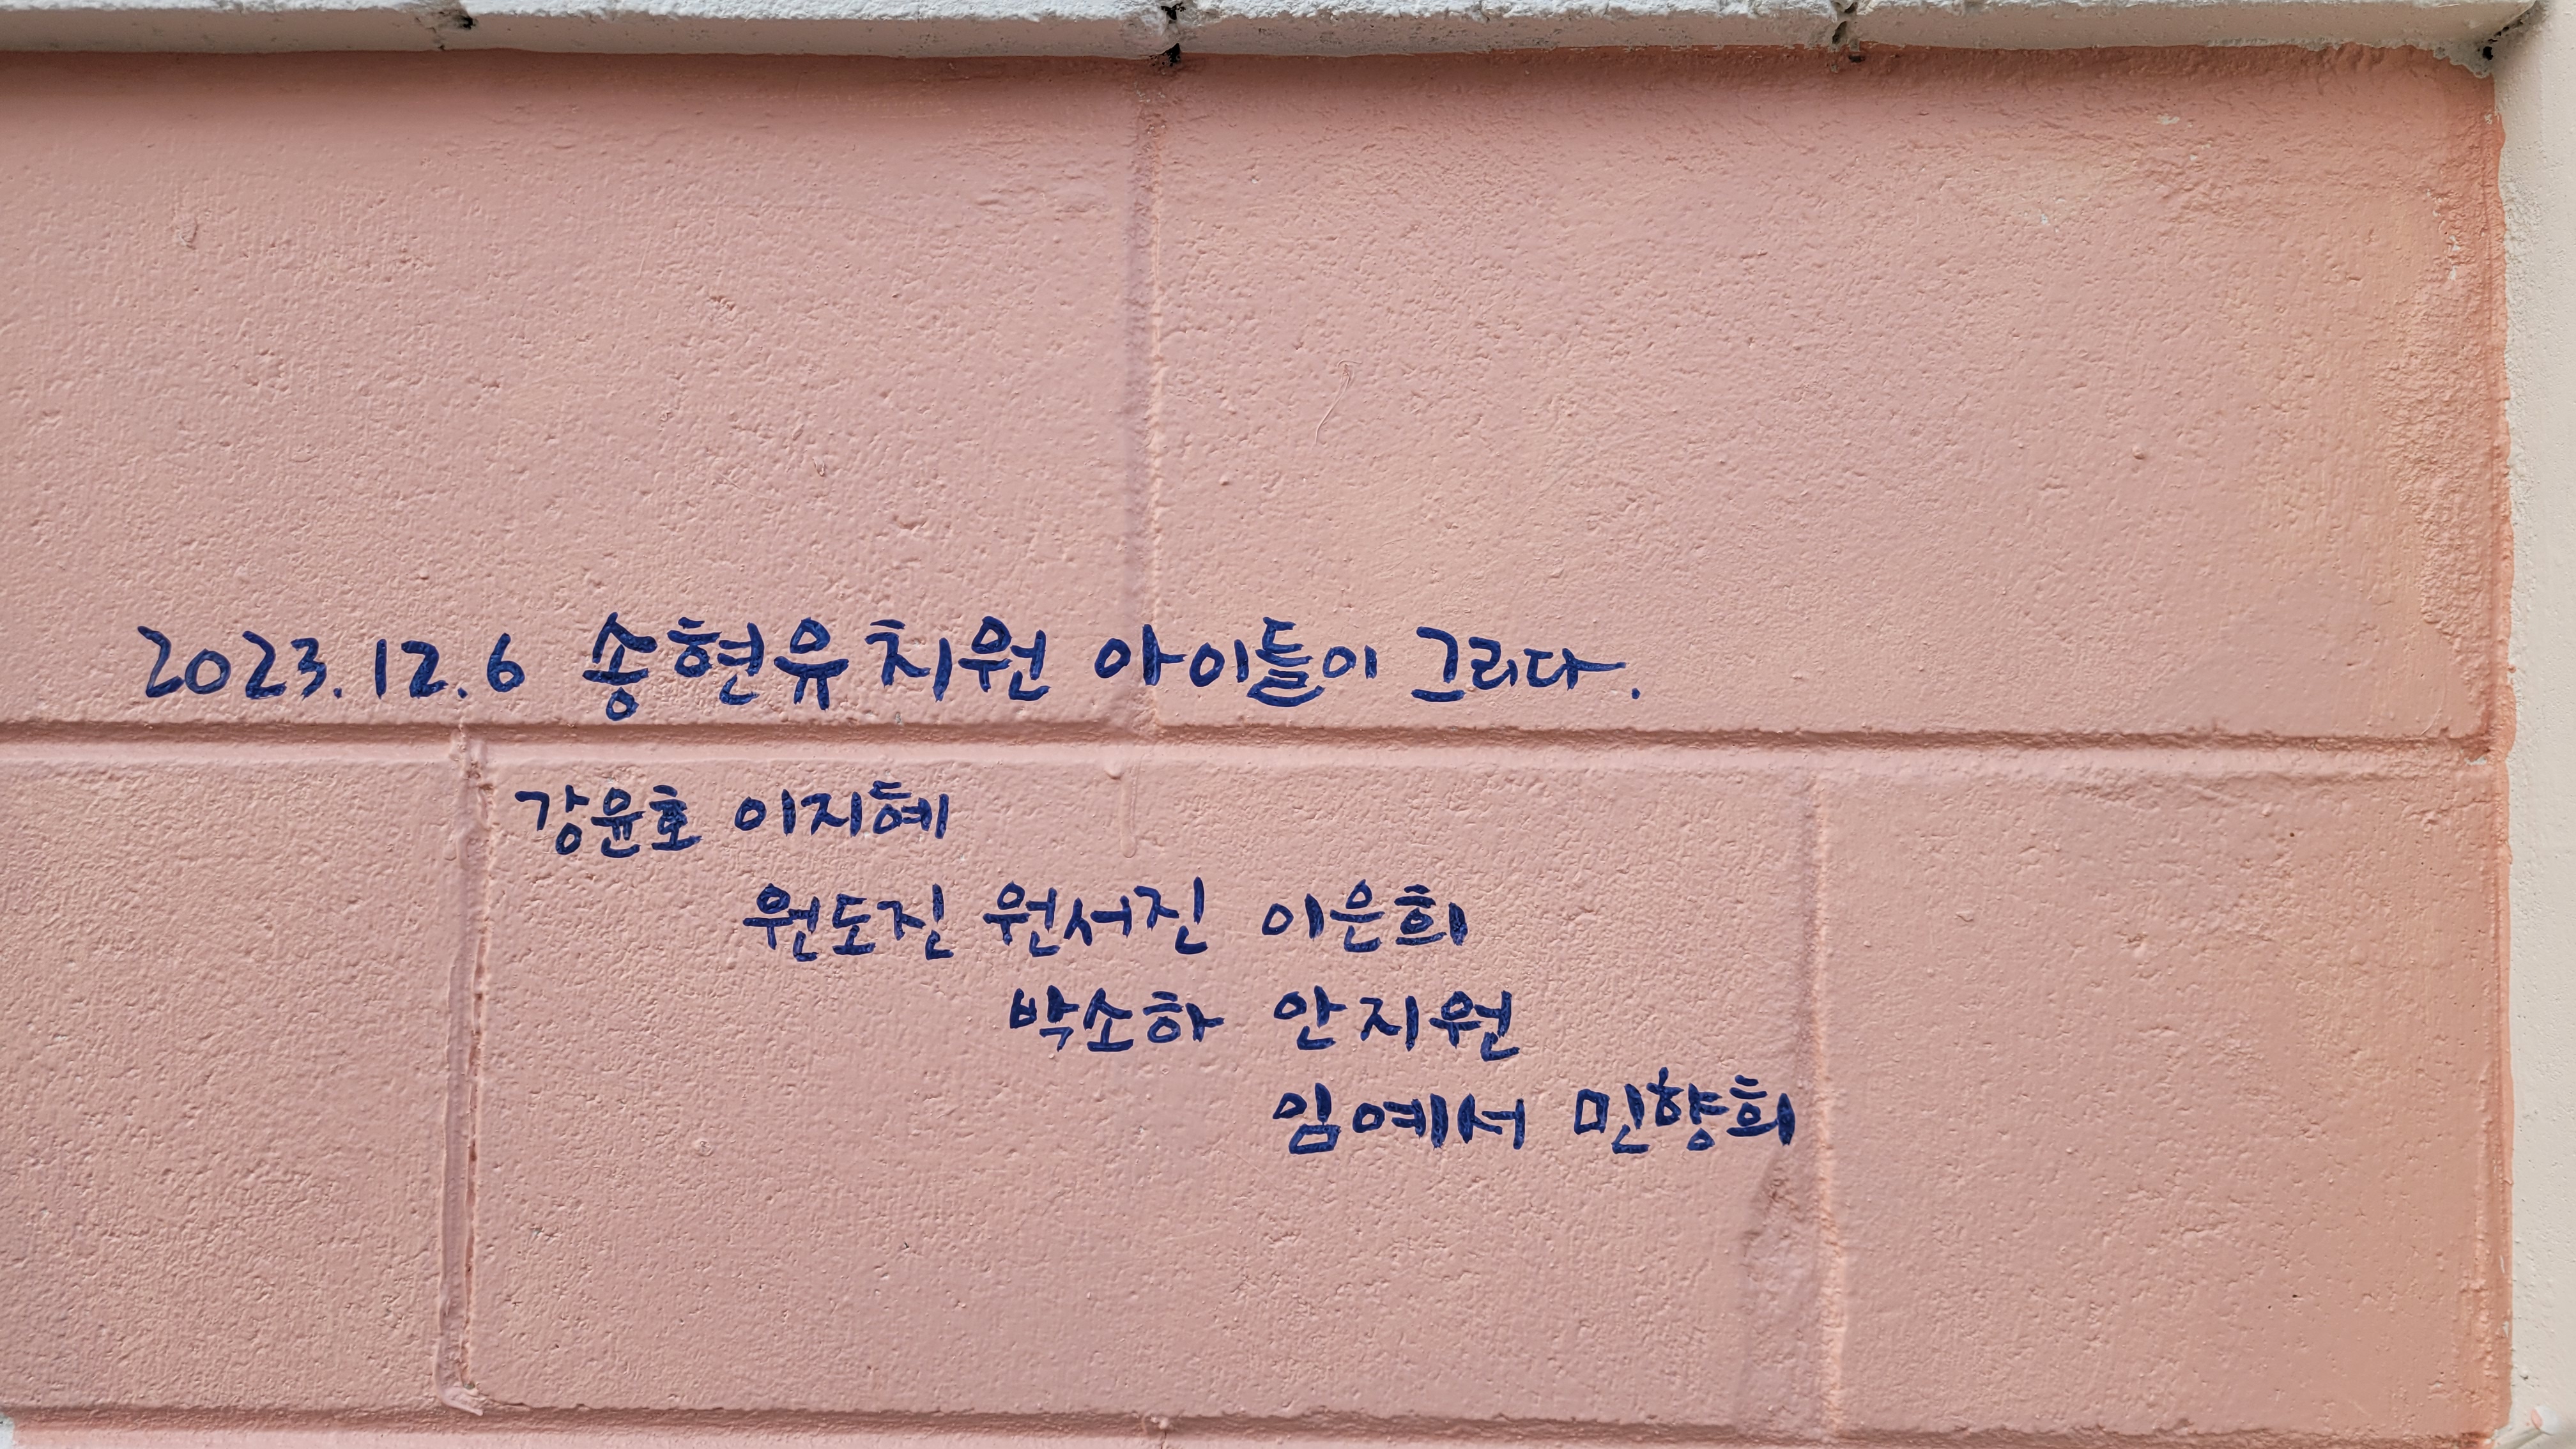 2023.12.6 송현유치원 아이들이 그리다.
강윤호 이지혜
원도진 원서진 이은희
박소하 안지원
임예서 민향희